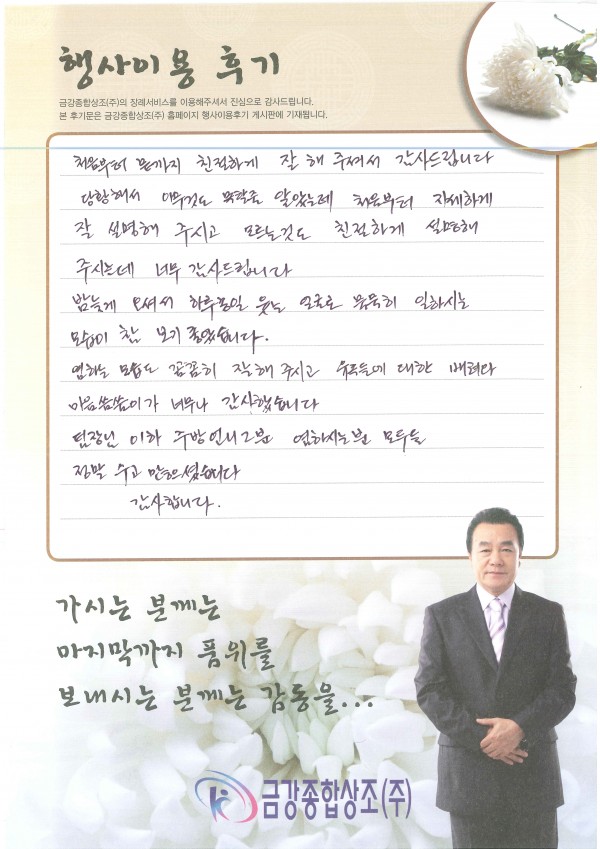 행사이용 후기
금강종합상조(주)의 장례서비스를 이용해주셔서 진심으로 감사드립니다.
본 후기문은 금강종합상조(주) 홈페이지 행사이용후기 게시판에 기재됩니다.
처음부터 끝까지 친절하게 잘 해 주셔서 감사드립니다
당황해서 아무것도 몰랐는데 처음부터 자세하게
잘 설명해 주시고 모르는것도 친절하게 설명해
주시는데 너무 감사드립니다
밤늦게 오셔서 하루종일 웃는 얼굴로 묵묵히 일하시는
모습이 참 보기 좋았습니다.
염하는 모습도 꼼꼼히 잘해 주시고 유족들에 대한 배려와
마음씀씀이가 너무나 감사했습니다
팀장님 이하 주방언니2분 염하시는분 모두들
정말 수고 많으셨습니다
감사합니다.
가시는 분께는
마지막까지 품위를
보내시는 분께는 감동을...
금강종합상조(주)